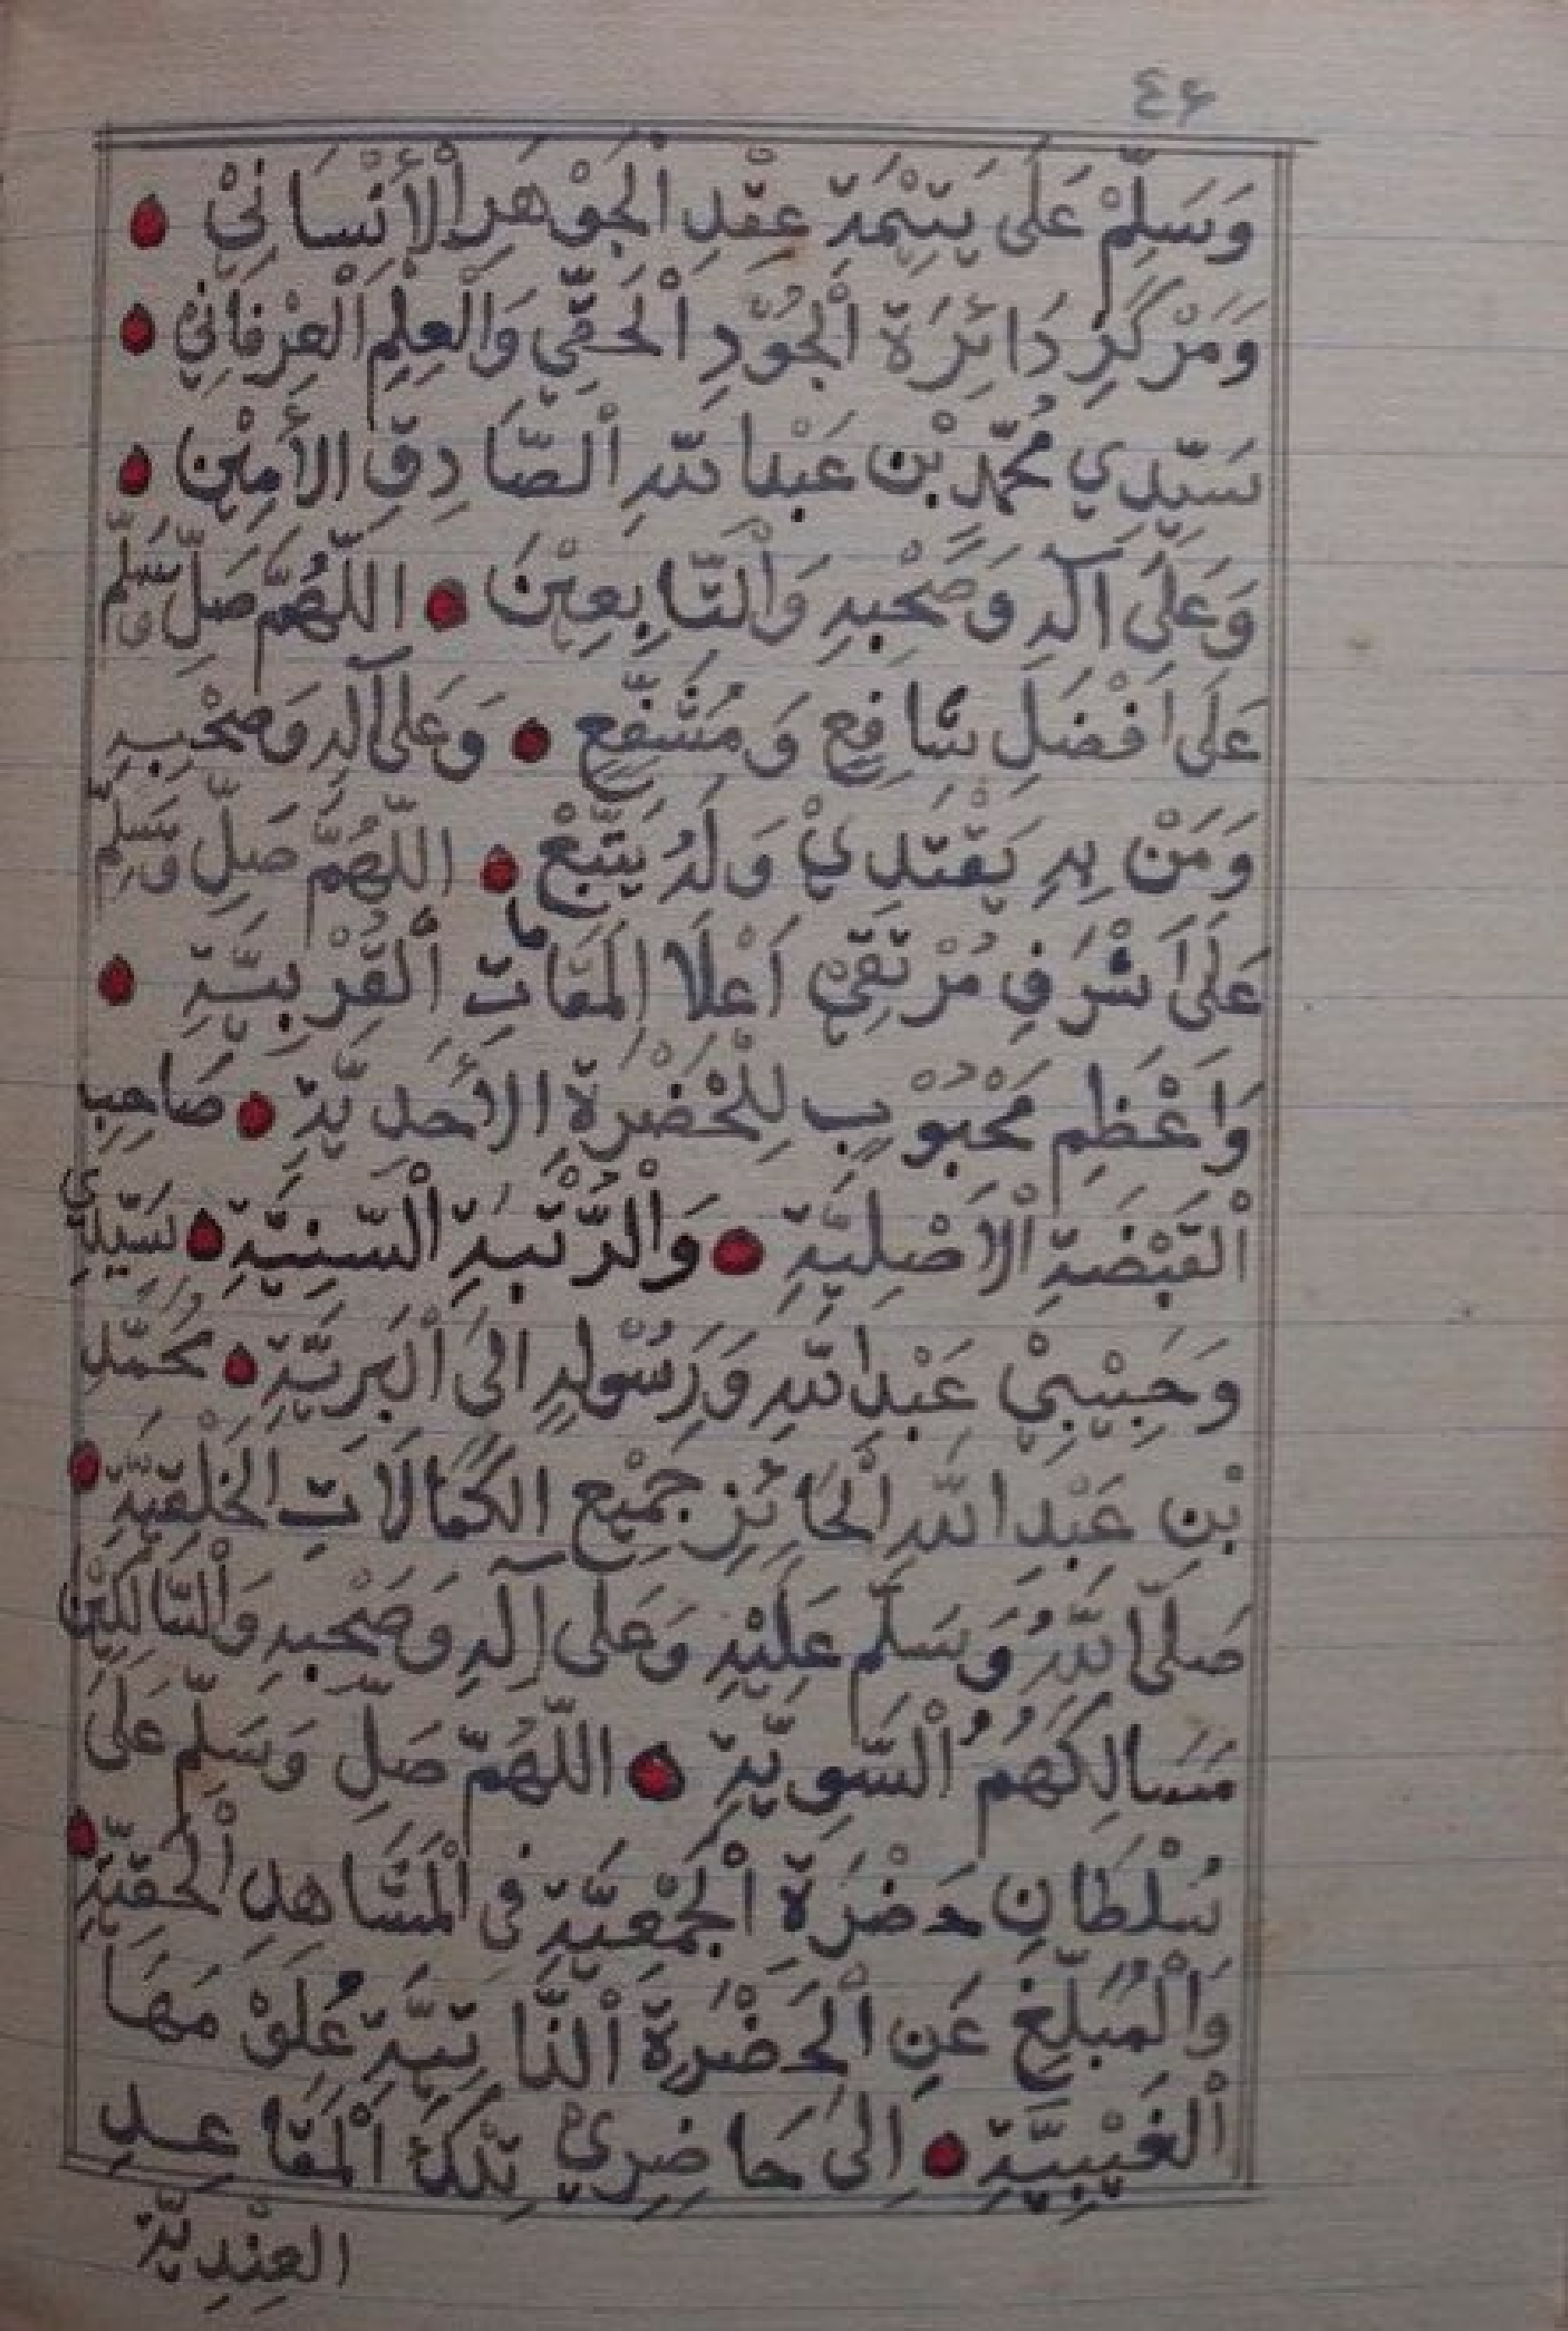 ٤٦
وَسَلِّمْ عَلَى يَتِيْمَةِ عِقْدِ اْلجَوْهَرِ اْلأِنْسَانِيْ
وَمَرْكَزِ دَائِرَةِ اْلجُوْدِ اْلحَقِّي وَالْعِلْمِ الْعِرْفَانِيْ
سَيِّدِي مُحَمَّدِ بْنِ عَبْدِ اللّٰهِ اْلصَّادِقِ الأَمِيْنِ
وَعَلَى آلِهِ وَصَحْبِهِ وَالتَّابِعِيْنَ اللّٰهُمَّ صَلِّ وَسَلِّمْ
عَلَى اَفْضَلِ شَافِعٍ وَمُشَفَّعٍ وَعَلَى آلِهِ وَصَحْبِهِ
وَمَنْ بِهِ يَقْتَدِيْ وَلَهُ يَتَّبِعْ اللّٰهُمَّ صَلِّ وَسَلِّمْ
عَلَى اَشْرَفِ مُرْتَقِيْ اَعْلَا المَقَامَاتِ اْلقُرْبِيَّةِ
وَاَعْظَمِ مَحْبُوْبٍ لِلْحَضْرَةِ الأَحَدِيَّةِ صَاحِبِ
اْلقَبْضَةِ اْلاَصْلِيَّةِ وَاْلرُّتْبَةِ اْلسَّنِيَّةِ سَيِّدِي
وَحَبِيْبِيْ عَبْدِ اللّٰهِ وَرَسُوْلِهِ اِلَى اْلبَرِيَّةِ مُحَمَّدِ
بْنِ عَبْدِ اللّٰهِ اْلحَائِزِ جَمِيْعِ الكَمَالَاتِ الخَلْقِيَّةِ
صَلَّى اللّٰهُ وَسَلَّمَ عَلَيْهِ وَعَلَى آلِهِ وَصَحْبِهِ وَاْلسَّالِكِيْنَ
مَسَالِكَهُمُ اْلسَّوِيَّةِ اللّٰهُمَّ صَلِّ وَسَلِّمْ عَلَى
سُلْطَانِ حَضْرَةِ اْلجَمْعِيَّةِ فِى اْلمَشَاهِدِ اْلحَقِّيَّةِ
وَاْلمُبَلِّغِ عَنِ اْلحَضْرَةِ اْلذَّاتِيَّةِ عُلُوْمَهَا
اْلغَيْبِيَّةِ اِلَى حَاضِرِيْ تِلْكَ اْلمَقَاعِدِ
العِنْدِيَّة